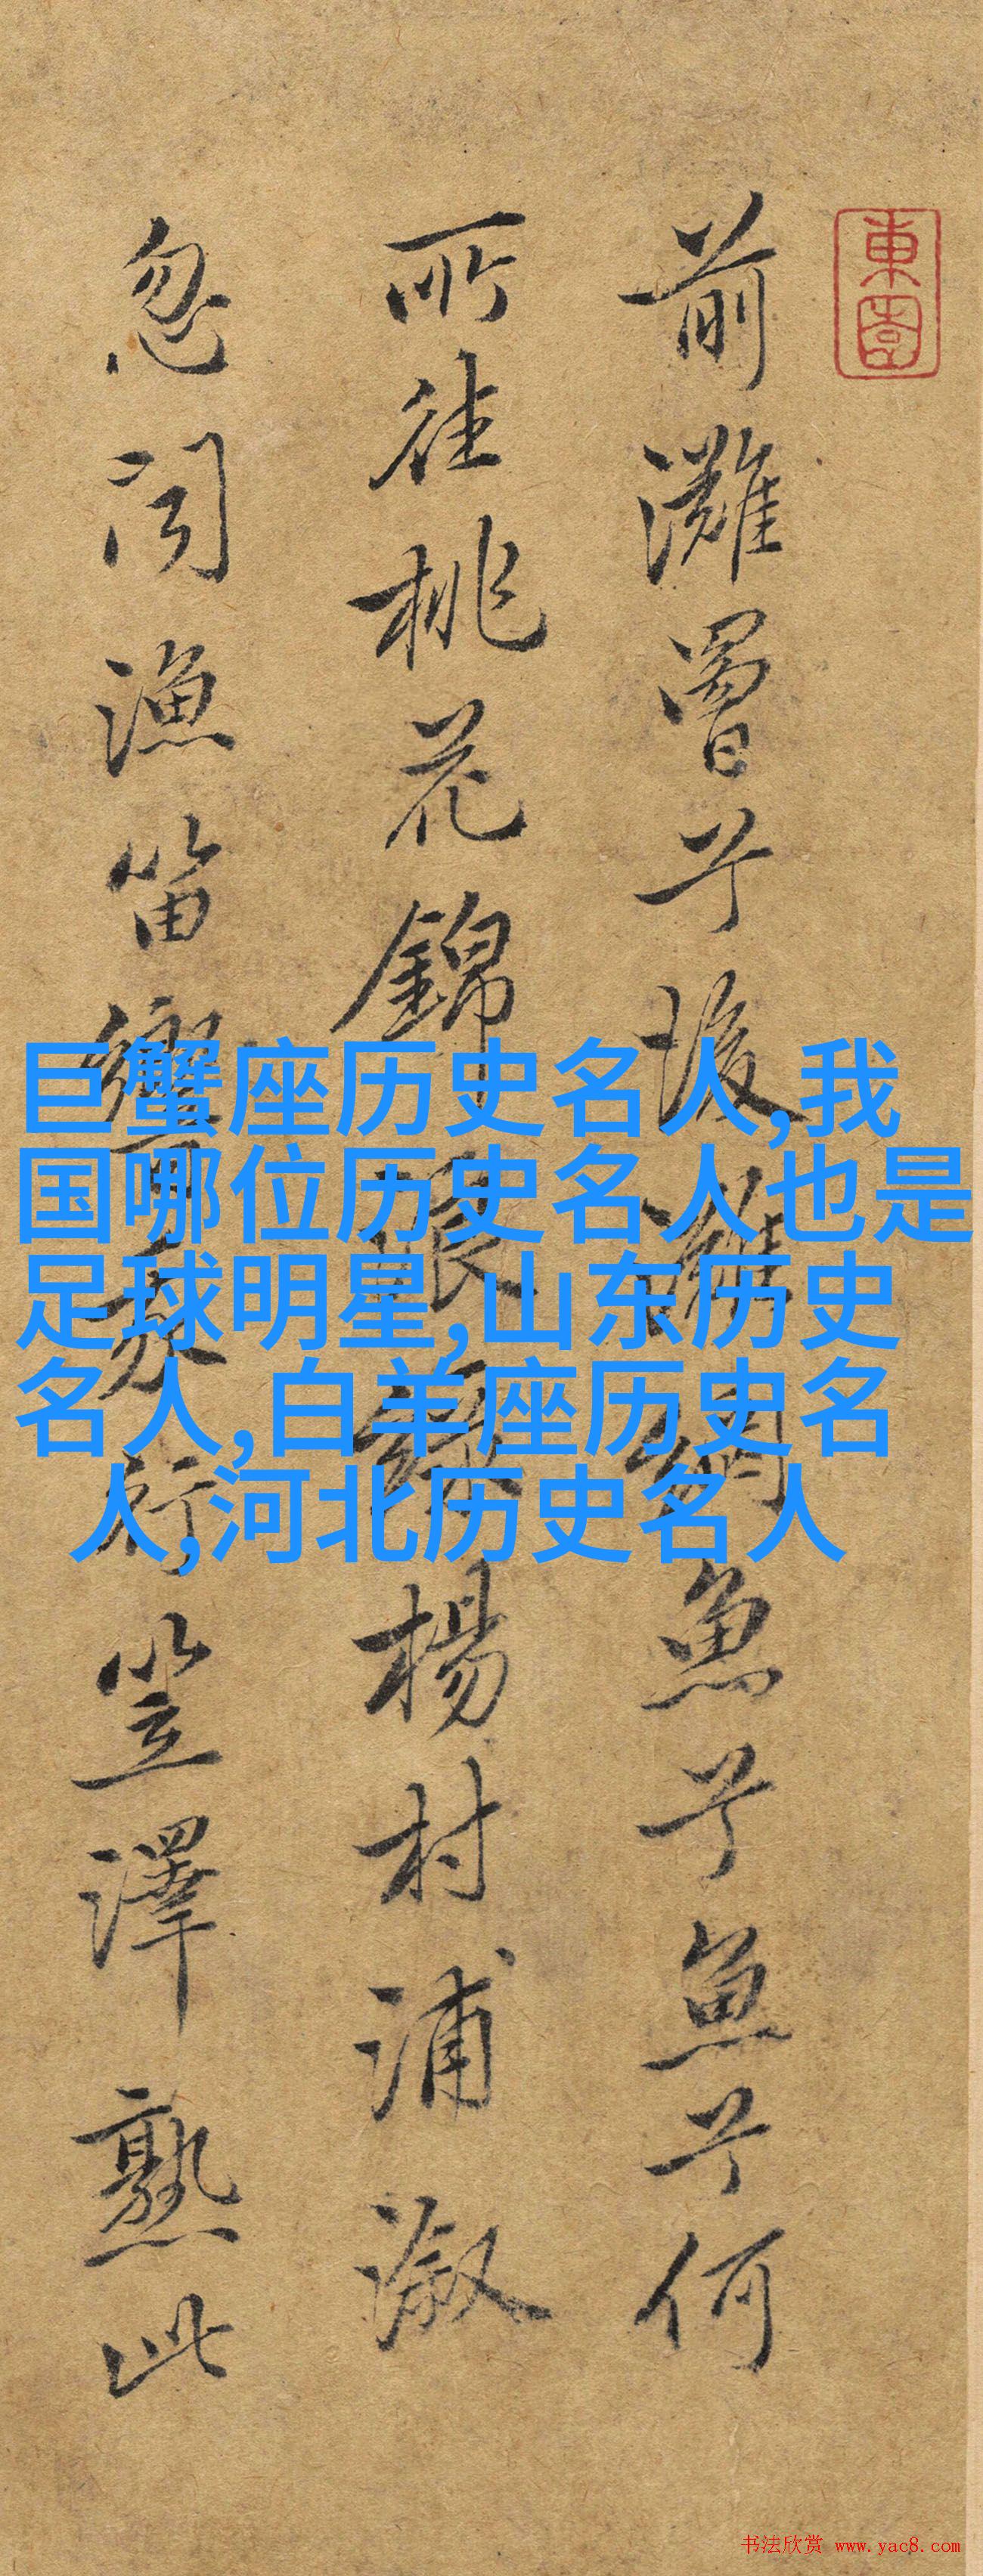 東園
前灘罾兮後灘網魚兮魚兮何
所往桃花錦浪綠楊村浦溆
忽聞漁笛響我行笠澤熟此
巨蟹座历史名人,我
国哪位历史名人也是
足球明星,山东历史
名人,白羊座历史名
人,河北历史名人
书法欣赏 www.yac8.com